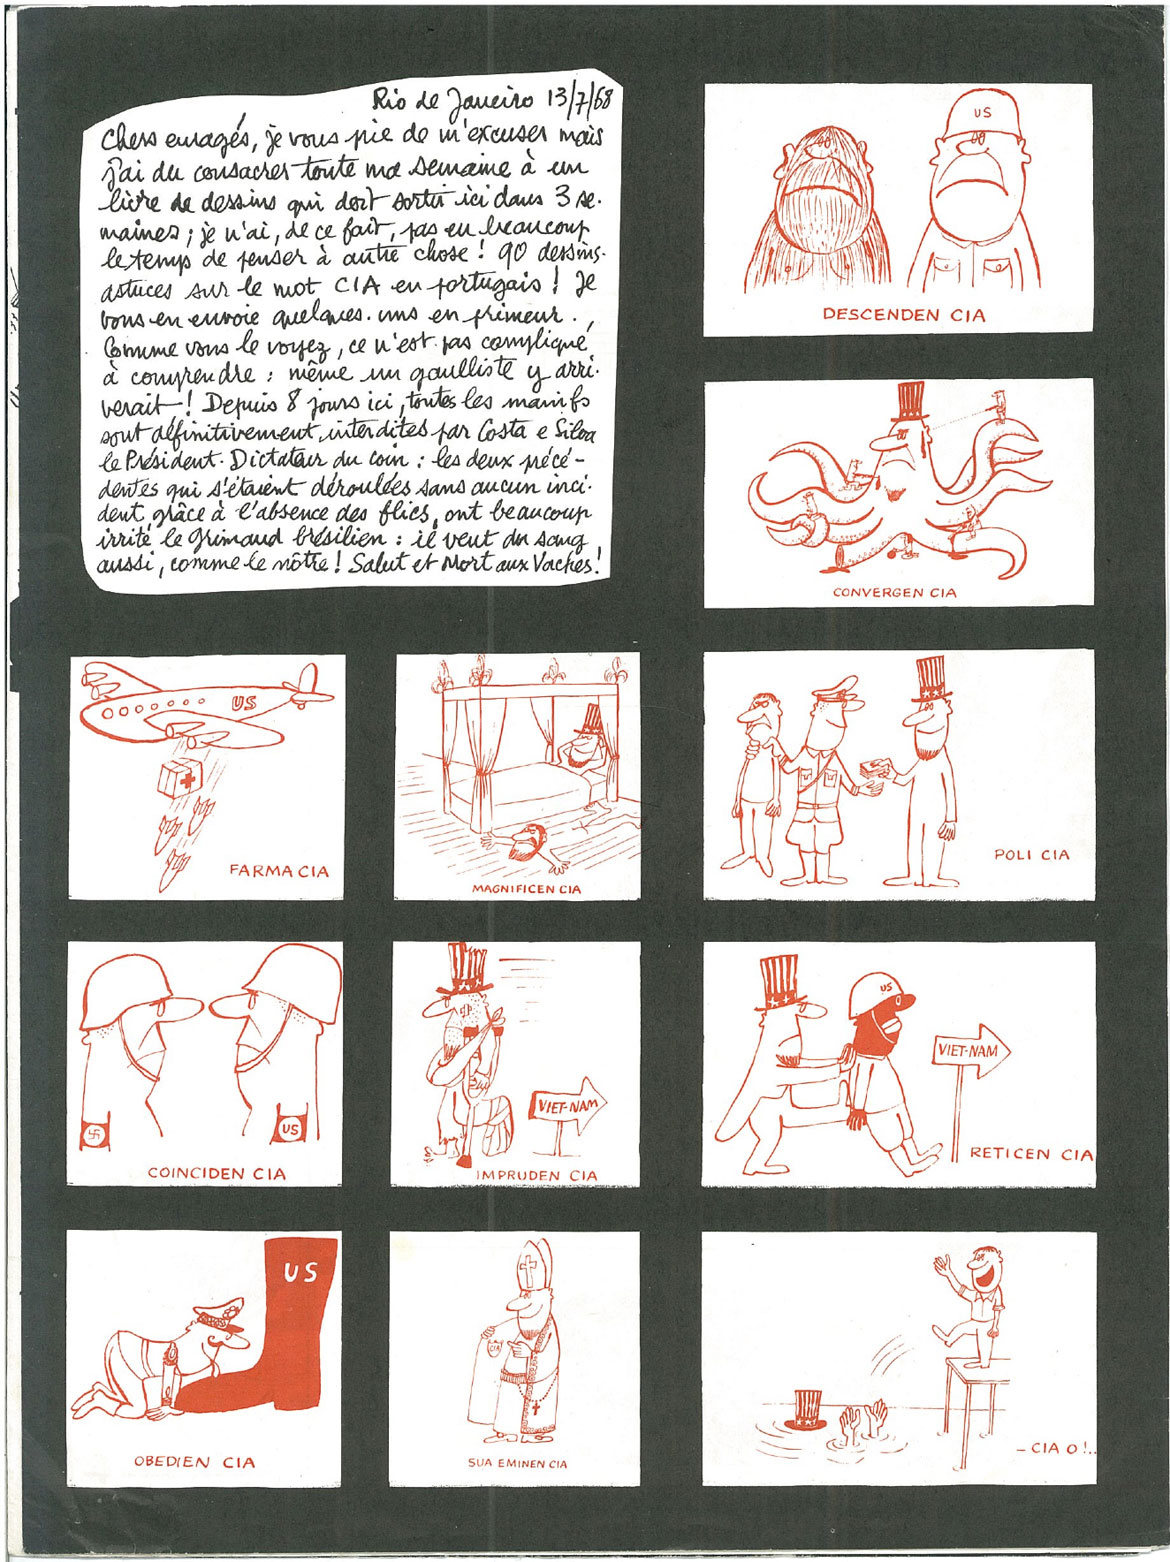 Rio de Janeiro 13/7/68
Chers enragés, je vous prie de m'excuser mais
j'ai du consacrer toute ma semaine à un
livre de dessins qui doit sortir ici dans 3 se-
maines ; je n'ai, de ce fait, pas eu beaucoup
le temps de penser à autre chose ! 90 dessins-
astuces sur le mot CIA en portugais ! Je
vous en envoie quelques-uns en primeur.
Comme vous le voyez, ce n'est pas compliqué
à comprendre : même un gaulliste y arri-
verait ! Depuis 8 jours ici, toutes les manifs
sont définitivement interdites par Costa e Silva
le Président-Dictateur du coin : les deux précé-
dentes qui s'étaient déroulées sans aucun inci-
dent, grâce à l'absence des flics, ont beaucoup
irrité le Grimaud brésilien : il veut du sang
aussi, comme le nôtre ! Salut et Mort aux Vaches !
US
DESCENDEN CIA
CONVERGEN CIA
US
FARMA CIA
MAGNIFICEN CIA
POLI CIA
US
COINCIDEN CIA
VIET-NAM
IMPRUDEN CIA
US
VIET-NAM
RETICEN CIA
US
OBEDIEN CIA
CIA
SUA EMINEN CIA
- CIA O !..